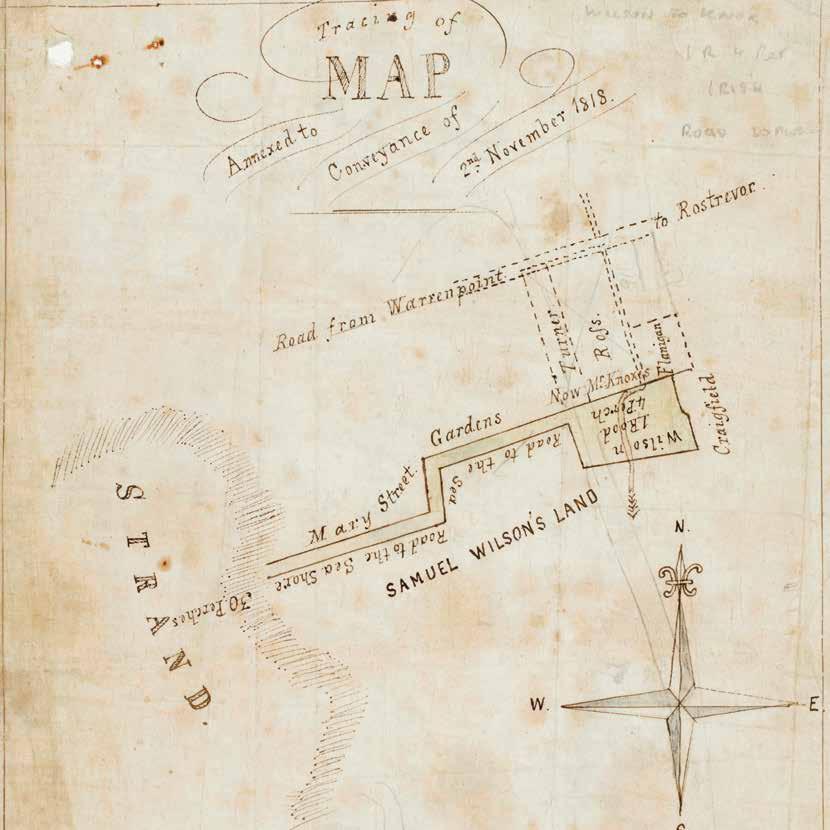 Tracing of
MAP
Annexed to
Conveyance of
2nd November 1818.
WILSON TO KNOX
1 R 4 Per
IRISH
ROAD
Road from Warrenpoint
to Rostrevor.
Turner
Roſs.
Flanigan
Now McKnoxes
Craigfield
Wilson
1 Rood
4 Perch
Gardens
Road to the Sea
Mary Street.
Road to the Sea Shore
30 Perches
SAMUEL WILSON'S LAND
STRAND.
N.
W.
E.